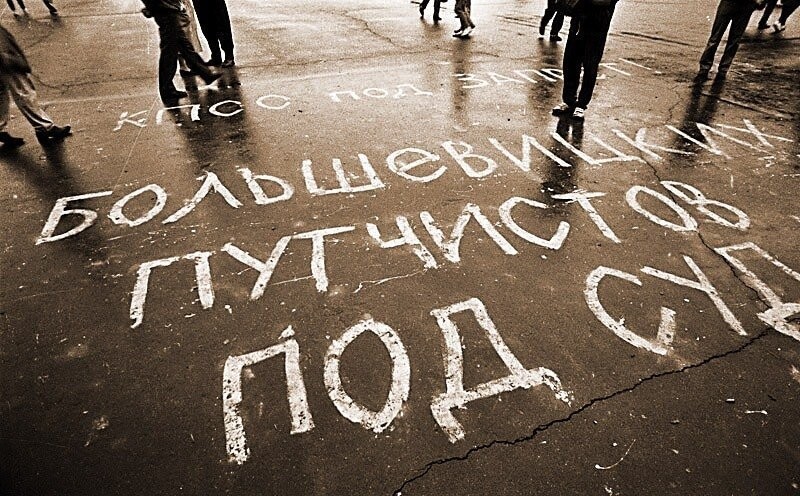 КПСС ПОД ЗАПРЕТ!
БОЛЬШЕВИЦКИХ
ПУТЧИСТОВ
ПОД СУД